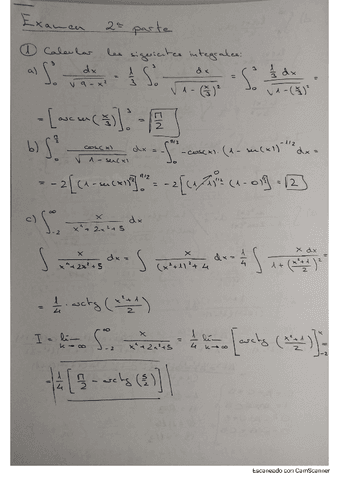 Examen 2ª parte
① Calcular las siguientes integrales:
a) ∫₀³ dx/√(9-x²) = 1/3 ∫₀³ dx/√(1-(x/3)²) = ∫₀³ (1/3 dx)/√(1-(x/3)²)
= [arc sen(x/3)]₀³ = π/2
cos(x)/√(1-sen(x)) dx = - ∫ -cos(x)·(1-sen(x))^(-1/2) dx =
= -2[(1-1) - (1-0)] = 2
c) ∫₋₂^∞ x/(x⁴+2x²+5) dx
∫ x/(x⁴+2x²+5) dx = ∫ x/((x²+1)²+4) dx = 1/4 ∫ x dx/(1+((x²+1)/2)²)
= 1/4 · arctg((x²+1)/2)
I = lím k→∞ ∫₋₂^∞ x/(x⁴+2x²+5) = 1/4 lím k→∞ [arctg((x²+1)/2)]₋₂
= 1/4 [π/2 - arctg(5/2)]
Escaneado con CamScanner